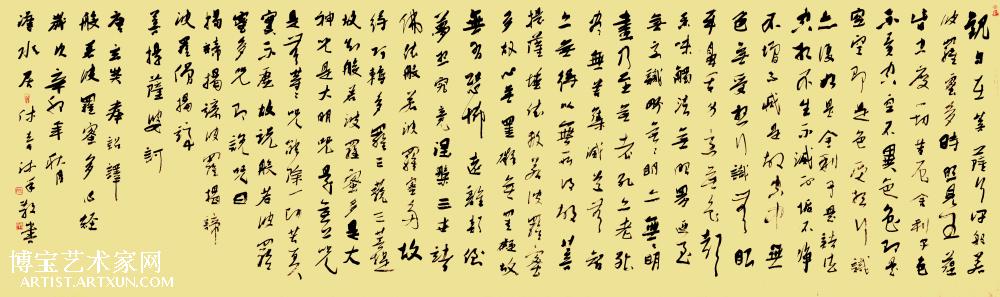 觀自在菩薩行深般若
波羅蜜多時照見五蘊
皆空度一切苦厄舍利子色
不異空空不異色色即是
空空即是色受想行識
亦復如是舍利子是諸法
空相不生不滅不垢不淨
不增不減是故空中無
色無受想行識無眼
耳鼻舌身意無色聲
香味觸法無眼界乃至
無意識界無無明亦無無明
盡乃至無老死亦無老死
盡無苦集滅道無智
亦無得以無所得故菩
提薩埵依般若波羅蜜
多故心無罣礙無罣礙故
無有恐怖遠離顛倒
夢想究竟涅槃三世諸
佛依般若波羅蜜多故
得阿耨多羅三藐三菩提
故知般若波羅蜜多是大
神咒是大明咒是無上咒
是無等等咒能除一切苦真
實不虛故說般若波羅
蜜多咒即說咒曰
揭諦揭諦波羅揭諦
波羅僧揭諦
菩提薩婆訶
唐玄奘奉詔譯
般若波羅蜜多心經
歲次辛卯年秋月
沐手敬書
博宝艺术家网
ARTIST.ARTXUN.COM